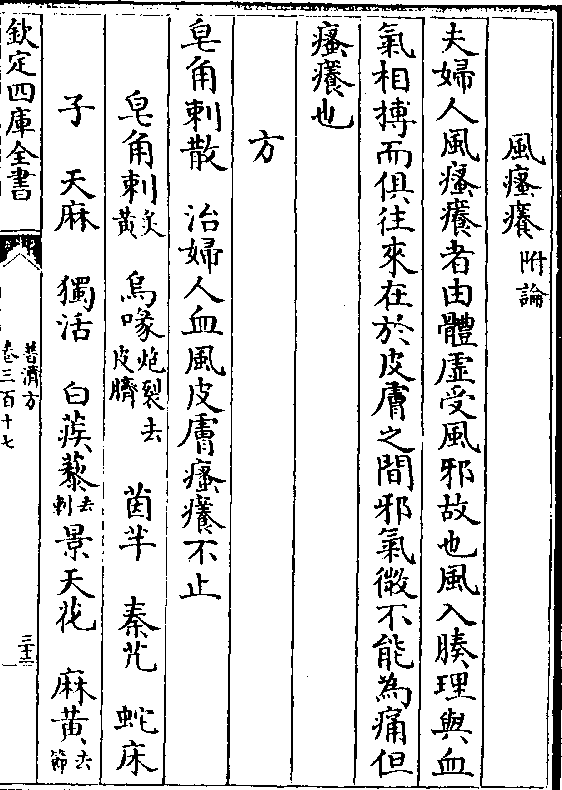 風瘙癢附論
夫婦人風瘙癢者由體虛受風邪故也風入腠理與血
氣相搏而俱往來在於皮膚之間邪氣微不能為痛但
瘙癢也
方
皂角刺散 治婦人血風皮膚瘙癢不止
皂角刺炙黃 烏喙炮裂去皮臍 茵芋 秦艽 蛇床
子 天麻 獨活 白蒺藜去刺 景天花 麻黃去節
欽定四庫全書
普濟方
卷三百十七